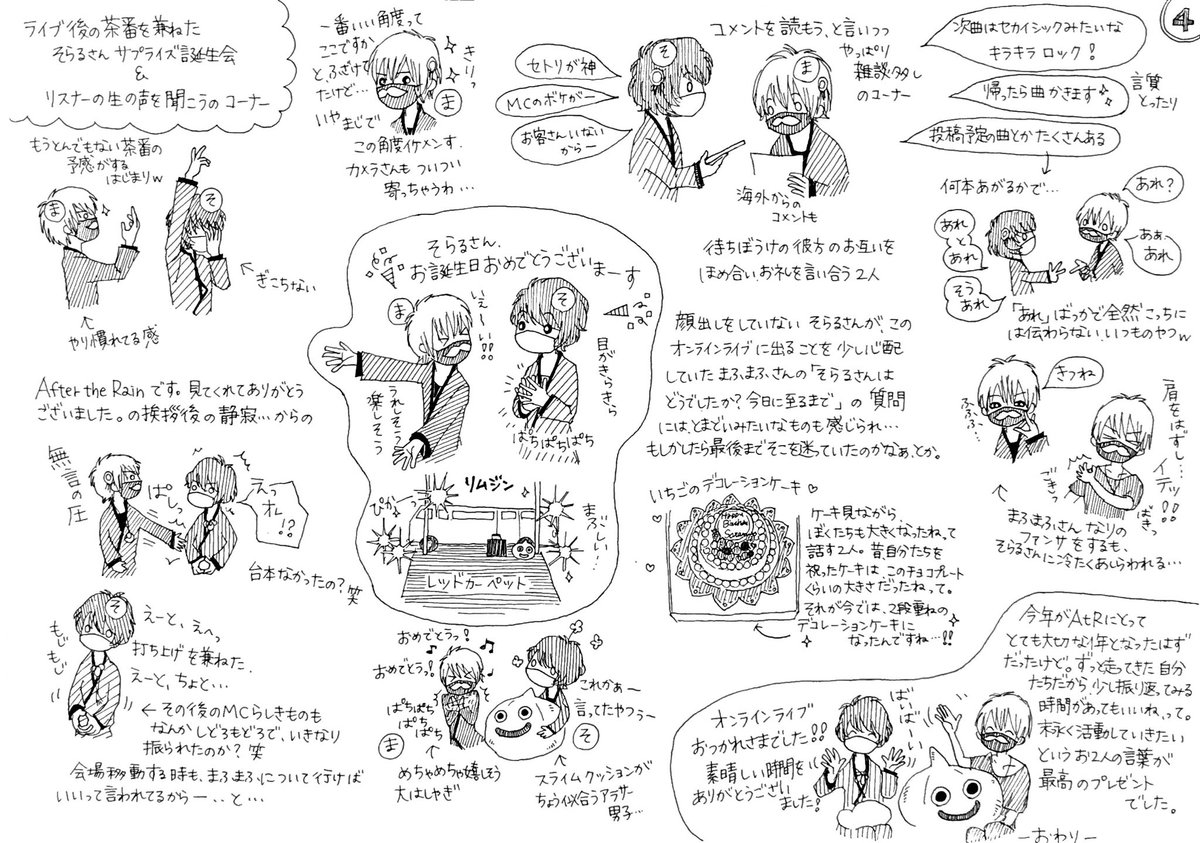 4
ライブ後の茶番を兼ねた
そらるさん サプライズ誕生会
&
リスナーの生の声を聞こうのコーナー
もうとんでもない茶番の
予感がする
はじまりw
ま
そ
ぎこちない
やり慣れてる感
一番いい角度って
ここですか
とふざけて
たけど…
いやまじで
きりっ
ま
この角度イケメンす。
カメラさんもついつい
寄っちゃうわ…
コメントを読もう、と言いつつ
やっぱり
雑談多し
のコーナー
セトリが神
MCのボケがー
お客さんいない
からー
そ
ま
海外からの
コメントも
待ちぼうけの彼方のお互いを
ほめ合い、お礼を言い合う2人
次曲はセカイシックみたいな
キラキラロック!
帰ったら曲かきます
言質
とったり
投稿予定の曲とかたくさんある
何本あがるかで…
あれ?
あぁ、
あれ
あれ
と
あれ
そう
あれ
「あれ」ばっかで全然こっちに
は伝わらない、いつものやつw
After the Rainです。見てくれてありがとう
ございました。の挨拶後の静寂…からの
無言の圧
ぱしっ
えっ
オレ
!?
台本なかったの?笑
そ
もじもじ
えーと、えへっ
打ち上げを兼ねた、
えーと、ちょと…
その後のMCらしきものも
なんかしどろもどろで、いきなり
振られたのか?笑
会場移動する時も、まふまふについて行けば
いいって言われてるからー、、と…
そらるさん、
お誕生日おめでとうございまーす
ま
いぇーい!!
そ
目がきらきら
うれしそう
楽しそう
ぱちぱちぱち
リムジン
ぴかっ
まぶしい…
レッドカーペット
おめでとうっ!
おめでとうっ!
ぱちぱち
ぱちぱち
ぱち
ま
めちゃめちゃ嬉しそう
大はしゃぎ
これかぁー
言ってたやつぅー
そ
スライムクッションが
ちょう似合うアラサー
男子…
顔出しをしていない そらるさんが、この
オンラインライブに出ることを少し心配
していた まふまふさんの「そらるさんは
どうでしたか?今日に至るまで」の質問
には、とまどいみたいなものも感じられ…
もしかしたら最後までそこを迷っていたのかなぁ、とか。
いちごのデコレーションケーキ♡
ケーキ見ながら
ぼくたちも大きくなったねって
話す2人。昔自分たちを
祝ったケーキは、このチョコプレート
くらいの大きさだったねって。
それが今では、2段重ねの
デコレーションケーキに
なったんですね…!!
きつね
ふふふ…
肩をはずし…
イテッ!!
ごきっ
ばきっ
まふまふさんなりの
ファンサをするも、
そらるさんに冷たくあしらわれる…
オンラインライブ
おつかれさまでした!!
素晴しい時間を
ありがとうござい
ました!
ばいばーい
今年がAtRにとって
とても大切な1年となったはず
だったけど。ずっと走ってきた自分
たちだから、少し振り返ってみる
時間があってもいいねって。
末永く活動していきたい
というお2人の言葉が
最高のプレゼント
でした。
ーおわりー